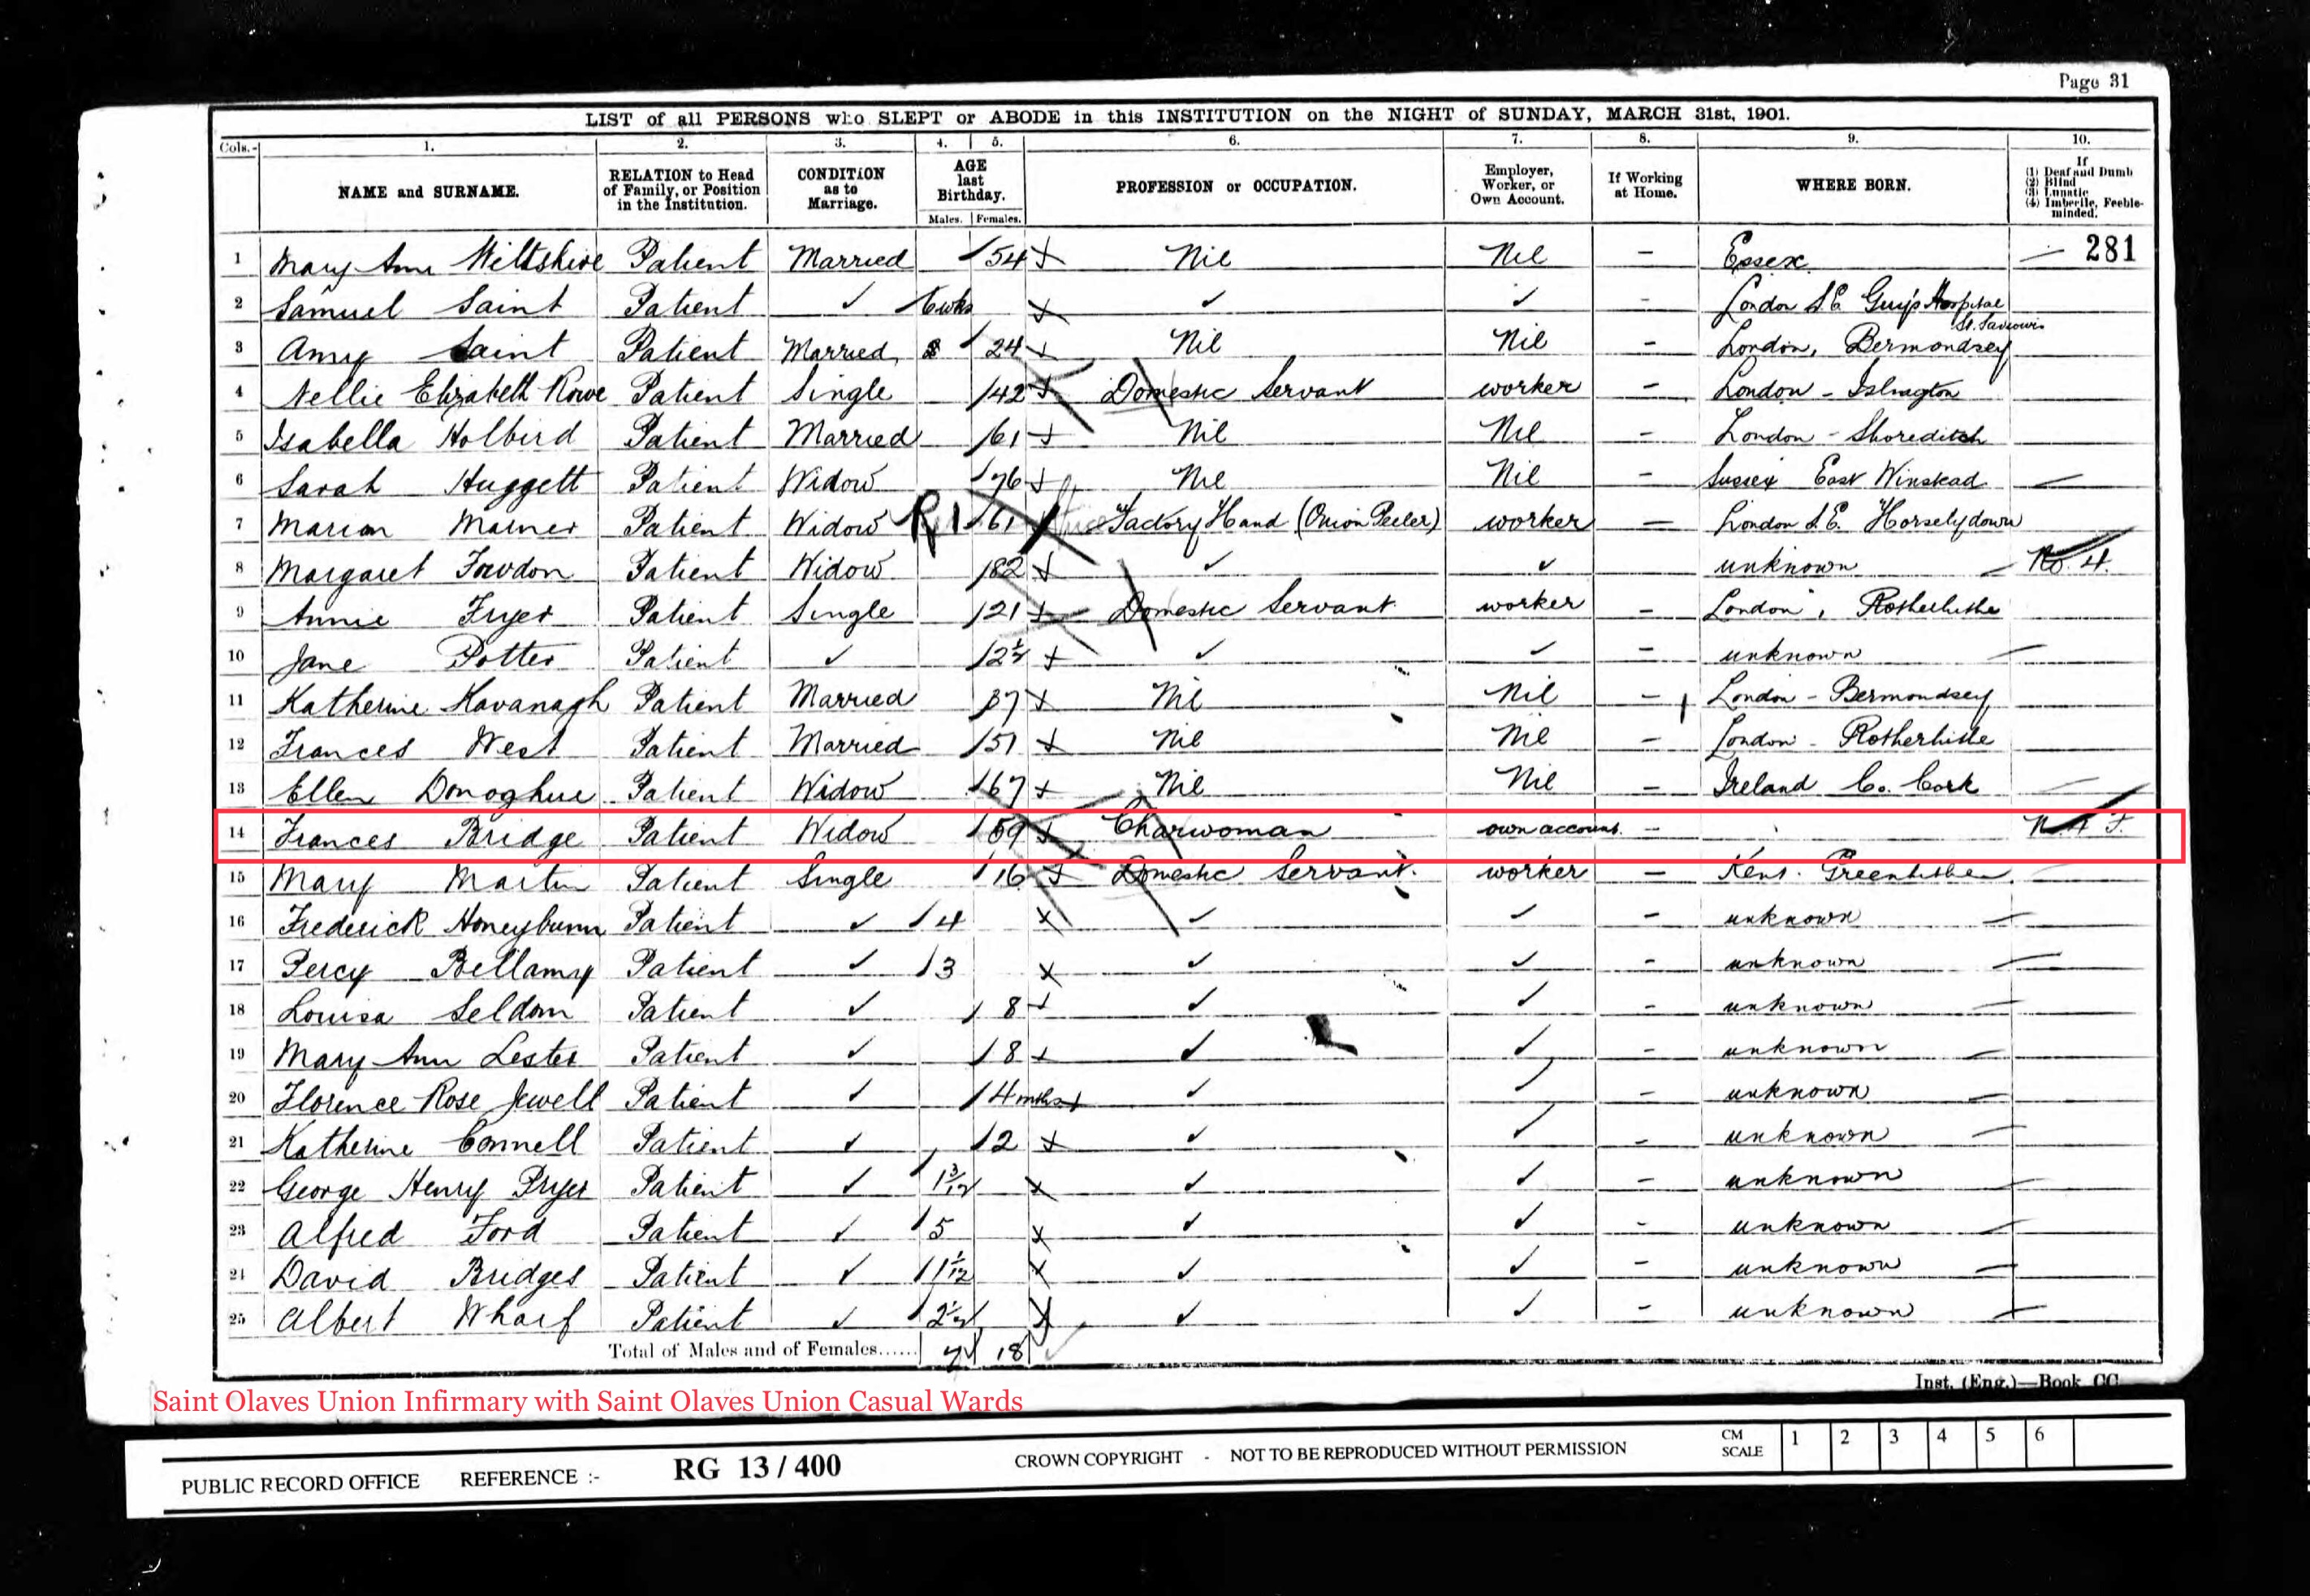 Page 31
LIST of all PERSONS who SLEPT or ABODE in this INSTITUTION on the NIGHT of SUNDAY, MARCH 31st, 1901.
Cols.- 1. 2. 3. 4. 5. 6. 7. 8. 9. 10.
NAME and SURNAME. RELATION to Head of Family, or Position in the Institution. CONDITION as to Marriage. AGE last Birthday. Males. Females. PROFESSION or OCCUPATION. Employer, Worker, or Own Account. If Working at Home. WHERE BORN. If (1) Deaf and Dumb (2) Blind (3) Lunatic (4) Imbecile, Feeble-minded.
281
1 Mary Ann Wiltshire Patient Married 54 Nil Nil - Essex
2 Samuel Saint Patient ✓ 6 wks ✓ ✓ - London S.E. Guy's Hospital St. Saviours
3 Amy Saint Patient Married 24 Nil Nil - London, Bermondsey
4 Nellie Elizabeth Rowe Patient Single 42 Domestic Servant worker - London - Islington
5 Isabella Holbird Patient Married 61 Nil Nil - London - Shoreditch
6 Sarah Huggett Patient Widow 76 Nil Nil - Sussex East Winstead
7 Marion Marner Patient Widow 61 Factory Hand (Onion Peeler) worker - London S.E. Horselydown
8 Margaret Patient Widow 82 ✓ ✓ unknown No. 4.
9 Annie Fryer Patient Single 21 Domestic Servant worker - London, Rotherhithe
10 Jane Potter Patient ✓ ✓ ✓ - unknown
11 Katherine Kavanagh Patient Married 37 Nil Nil - London - Bermondsey
12 Frances West Patient Married 51 Nil Nil - London - Rotherhithe
13 Ellen Donoghue Patient Widow 67 Nil Nil - Ireland Co. Cork
14 Frances Bridge Patient Widow 59 Charwoman own account. -
15 Mary Martin Patient Single 16 Domestic Servant. worker - Kent. Greenhithe
16 Frederick Honeybunn Patient ✓ 4 ✓ ✓ - unknown
17 Percy Bellamy Patient ✓ 3 ✓ ✓ - unknown
18 Louisa Seldon Patient ✓ 8 ✓ ✓ - unknown
19 Mary Ann Lester Patient ✓ 8 ✓ ✓ - unknown
20 Florence Rose Jewell Patient ✓ 4 mths ✓ ✓ - unknown
21 Katherine Connell Patient ✓ 2 ✓ ✓ - unknown
22 George Henry Pryer Patient ✓ 1 3/12 ✓ ✓ - unknown
23 Alfred Ford Patient ✓ 5 ✓ ✓ - unknown
24 David Bridges Patient ✓ 1 1/12 ✓ ✓ - unknown
25 Albert Wharf Patient ✓ 2 1/2 ✓ ✓ - unknown
Total of Males and of Females...... 7 18
Inst. (Eng.)—Book CC
Saint Olaves Union Infirmary with Saint Olaves Union Casual Wards
PUBLIC RECORD OFFICE REFERENCE :- RG 13 / 400 CROWN COPYRIGHT - NOT TO BE REPRODUCED WITHOUT PERMISSION CM SCALE 1 2 3 4 5 6